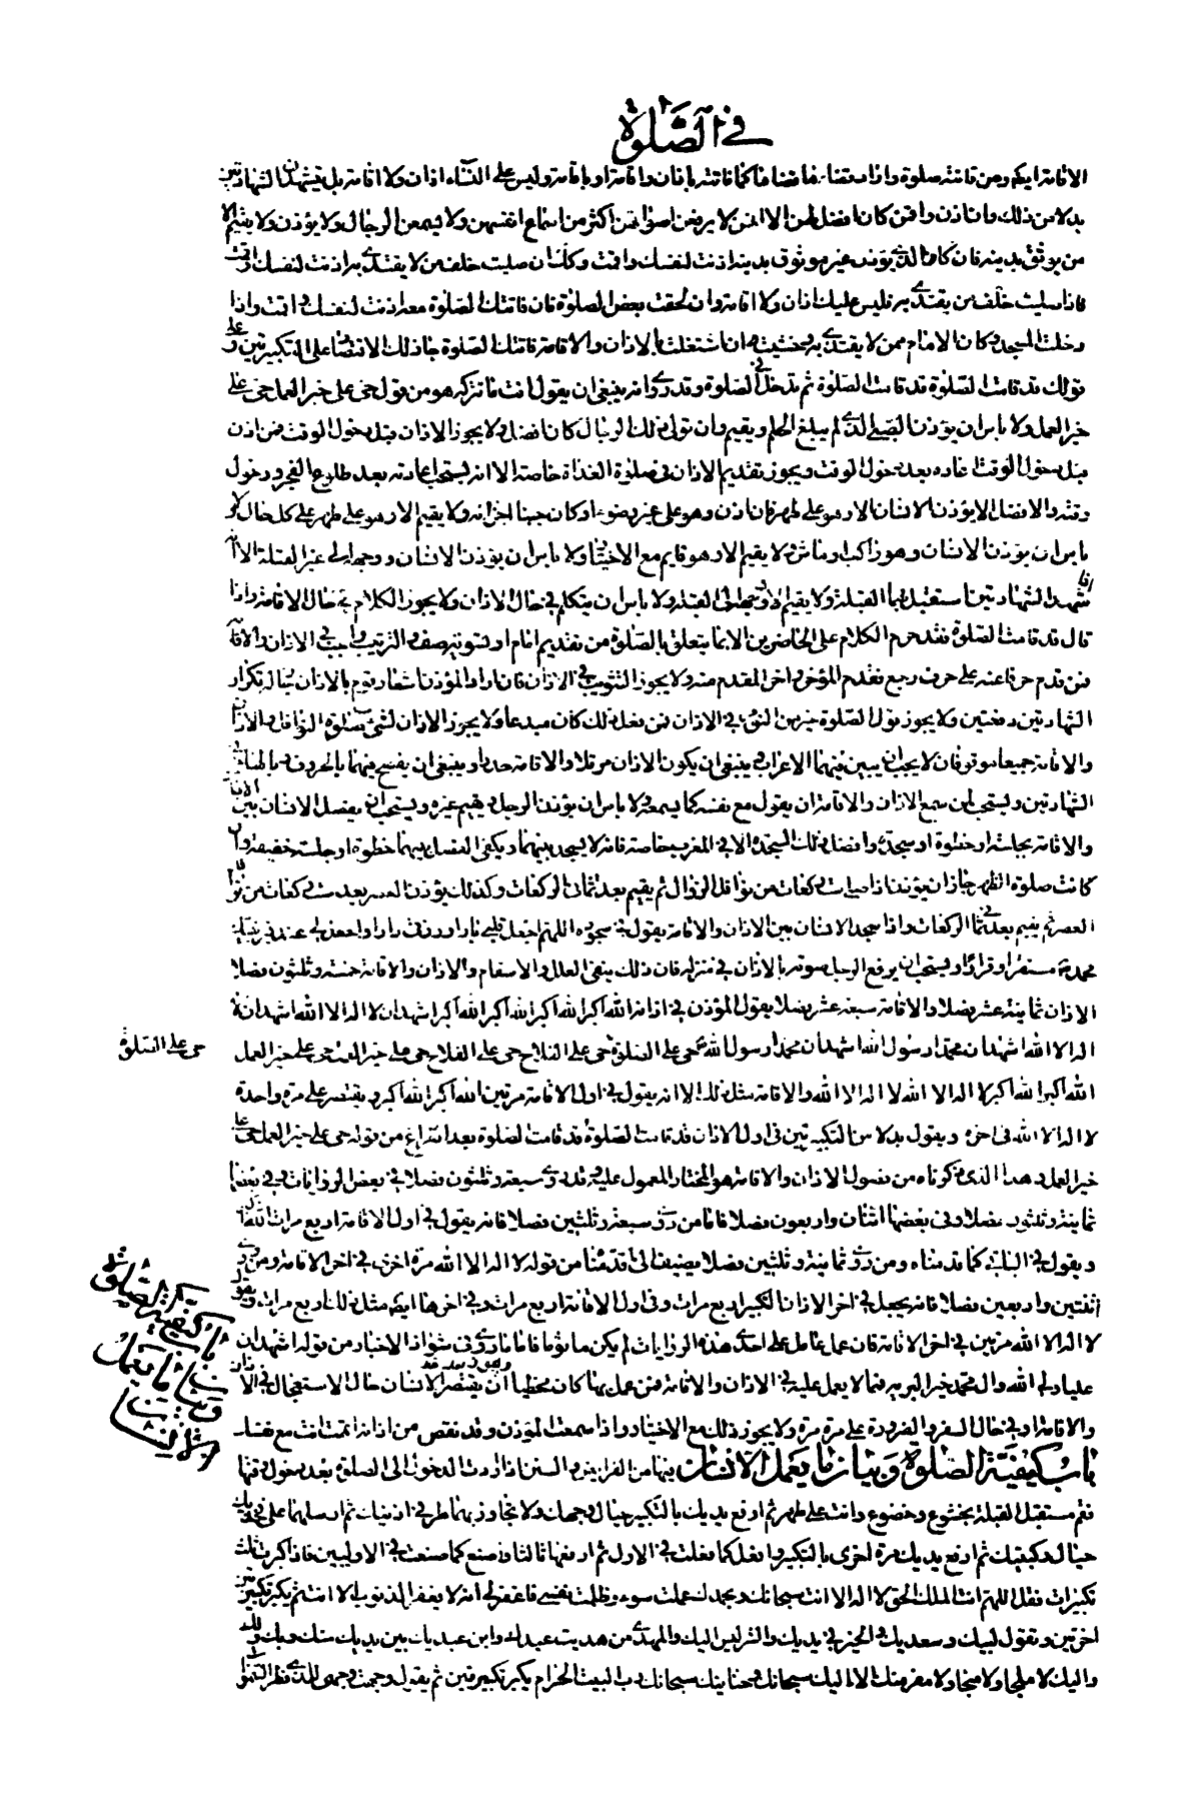 في الصلوة
الاقامة ايكم ومن فاتته صلوة واراد قضاءها قضاها كما فاتته باذان واقامة او باقامة وليس على النساء اذان ولا اقامة بل يتشهدن الشهادتين
بدلا من ذلك وان اذن واقمن كان افضل لهن الا انهن لا يرفعن اصواتهن اكثر من اسماع انفسهن ولا يسمعن الرجال ولا يؤذن ولا يقيم الا
من يوثق بدينه فان كان الذي يؤذن غير موثوق بدينه اذنت لنفسك واقمت وكذلك ان صليت خلف من لا يقتدى به اذنت لنفسك واقمت
فاذا صليت خلف من يقتدى به فليس عليك اذان ولا اقامة وان لحقت بعض الصلوة فان فاتتك الصلوة معه اذنت لنفسك واقمت واذا
دخلت المسجد وكان الامام ممن لا يقتدى به وخشيت ان اشتغلت بالاذان والاقامة فاتتك الصلوة جاز لك الاقتصار على التكبيرتين وعلى
قولك قد قامت الصلوة قد قامت الصلوة ثم تدخل في الصلوة وقد روي انه ينبغي ان يقول انت ما تركه هو من قول حي على خير العمل حي على
خير العمل ولا باس ان يؤذن الصبي الذي لم يبلغ الحلم ويقيم وان تولى ذلك الرجال كان افضل ولا يجوز الاذان قبل دخول الوقت فمن اذن
قبل دخول الوقت اعاده بعد دخول الوقت ويجوز تقديم الاذان في صلوة الغداة خاصة الا انه يستحب اعادته بعد طلوع الفجر ودخول
وقته والافضل الا يؤذن الانسان الا وهو على طهر فان اذن وهو على غير وضوء او كان جنبا اجزاه ولا يقيم الا وهو على طهر على كل حال ولا
باس ان يؤذن الانسان وهو راكب او ماش ولا يقيم الا وهو قايم مع الاختيار ولا باس ان يؤذن الانسان ووجهه الى غير القبلة الا انه
اذا
شهد الشهادتين استقبل بهما القبلة ولا يقيم الا ووجهه الى القبلة ولا باس ان يتكلم في حال الاذان ولا يجوز الكلام في حال الاقامة واذا
قال قد قامت الصلوة فقد حرم الكلام على الحاضرين الا بما يتعلق بالصلوة من تقديم امام او تسوية صف والترتيب واجب في الاذان والاقامة
فمن قدم حرفا منه على حرف رجع فقدم المؤخر واخر المقدم منه ولا يجوز التثويب في الاذان فان اراد المؤذن اشعار قوم بالاذان جاز له تكرار
الشهادتين دفعتين ولا يجوز قول الصلوة خير من النوم في الاذان فمن فعل ذلك كان مبدعا ولا يجوز الاذان لشيء من صلوة النوافل والاذان
والاقامة جميعا موقوفان لا يجب ان يبين فيهما الاعراب وينبغي ان يكون الاذان مرتلا والاقامة حدرا وينبغي ان يفصح فيهما بالحروف وبالهاء في
الشهادتين ويستحب لمن سمع الاذان والاقامة ان يقول مع نفسه كما يسمعه ولا باس ان يؤذن الرجل ويقيم غيره ويستحب ان يفصل الانسان بين الاذان
والاقامة بجلسة او خطوة او سجدة وافضل ذلك السجدة الا في المغرب خاصة فانه لا يسجد بينهما ويكفي الفصل بينهما خطوة او جلسة خفيفة وان
كانت صلوة الظهر جاز ان يؤذن اذا صلى ست ركعات من نوافل الزوال ثم يقيم بعد ثمان الركعات وكذلك يؤذن للعصر بعد ست ركعات من نوافل
العصر ثم يقيم بعد ثماني الركعات واذا سجد الانسان بين الاذان والاقامة يقول في سجوده اللهم اجعل قلبي بارا ورزقي دارا واجعل لي عند قبر نبيك
محمد ص مستقرا وقرارا ويستحب ان يرفع الرجل صوته بالاذان في منزله فان ذلك ينفي العلل والاسقام والاذان والاقامة خمسة وثلثون فصلا
الاذان ثمانية عشر فصلا والاقامة سبعة عشر فصلا يقول المؤذن في اذانه الله اكبر الله اكبر الله اكبر الله اكبر اشهد ان لا اله الا الله اشهد ان لا
اله الا الله اشهد ان محمدا رسول الله اشهد ان محمدا رسول الله حي على الصلوة حي على الفلاح حي على الفلاح حي على خير العمل حي على خير العمل
حي على الصلوة
الله اكبر الله اكبر لا اله الا الله لا اله الا الله والاقامة مثل ذلك الا انه يقول في اول الاقامة مرتين الله اكبر الله اكبر ويقتصر على مرة واحدة
لا اله الا الله في اخره ويقول بدلا من التكبيرتين في اول الاذان قد قامت الصلوة قد قامت الصلوة بعد الفراغ من قوله حي على خير العمل حي على
خير العمل وهذا الذي ذكرناه من فصول الاذان والاقامة هو المختار المعمول عليه وقد روي سبعة وثلثون فصلا في بعض الروايات وفي بعضها
ثمانية وثلثون فصلا وفي بعضها اثنان واربعون فصلا فاما من روى سبعة وثلثين فصلا فانه يقول في اول الاقامة اربع مرات الله اكبر
ويقول في الباقي كما قدمناه ومن روى ثمانية وثلثين فصلا يضيف الى ما قدمناه من قول لا اله الا الله مرة اخرى في اخر الاقامة ومن روى
اثنتين واربعين فصلا فانه يجعل في اخر الاذان التكبير اربع مرات وفي اول الاقامة اربع مرات وفي اخرها ايضا مثل ذلك اربع مرات ويقول
لا اله الا الله مرتين في اخر الاقامة فان عمل عامل على احدى هذه الروايات لم يكن ماثوما فاما ما روي في شواذ الاخبار من قول اشهد ان
عليا ولي الله وال محمد خير البرية فمما لا يعمل عليه في الاذان والاقامة فمن عمل بها كان مخطيا ويجوز ان يقتصر الانسان حال الاستعجال في الاذان
والاقامة وفي حال السفر والضرورة على مرة مرة ولا يجوز ذلك مع الاختيار واذا سمعت المؤذن وقد نقص من اذانه اتممت انت مع نفسك
باب كيفية الصلوة وبيان ما يعمل الانسان فيها من الفرايض والسنن اذا اردت الدخول الى الصلوة بعد دخول وقتها
باب كيفية الصلوة وبيان ما يعمل الانسان
فقم مستقبل القبلة بخشوع وخضوع وانت على طهر ثم ارفع يديك بالتكبير حيال وجهك ولا تجاوز بهما طرفي اذنيك ثم ارسلهما على فخذيك
حيال ركبتيك ثم ارفع يديك مرة اخرى بالتكبير وافعل كما فعلت في الاول ثم ارفعها ثالثا واصنع كما صنعت في الاوليين فاذا كبرت ثلث
تكبيرات فقل اللهم انت الملك الحق لا اله الا انت سبحانك وبحمدك عملت سوء وظلمت نفسي فاغفر لي انه لا يغفر الذنوب الا انت ثم يكبر تكبيرتين
اخرتين وتقول لبيك وسعديك والخير في يديك والشر ليس اليك والمهدي من هديت عبدك وابن عبديك بين يديك منك وبك ولك
واليك لا ملجا ولا منجا ولا مفر منك الا اليك سبحانك وحنانيك سبحانك رب البيت الحرام يكبر تكبيرتين ثم يقول وجهت وجهي للذي فطر السموات